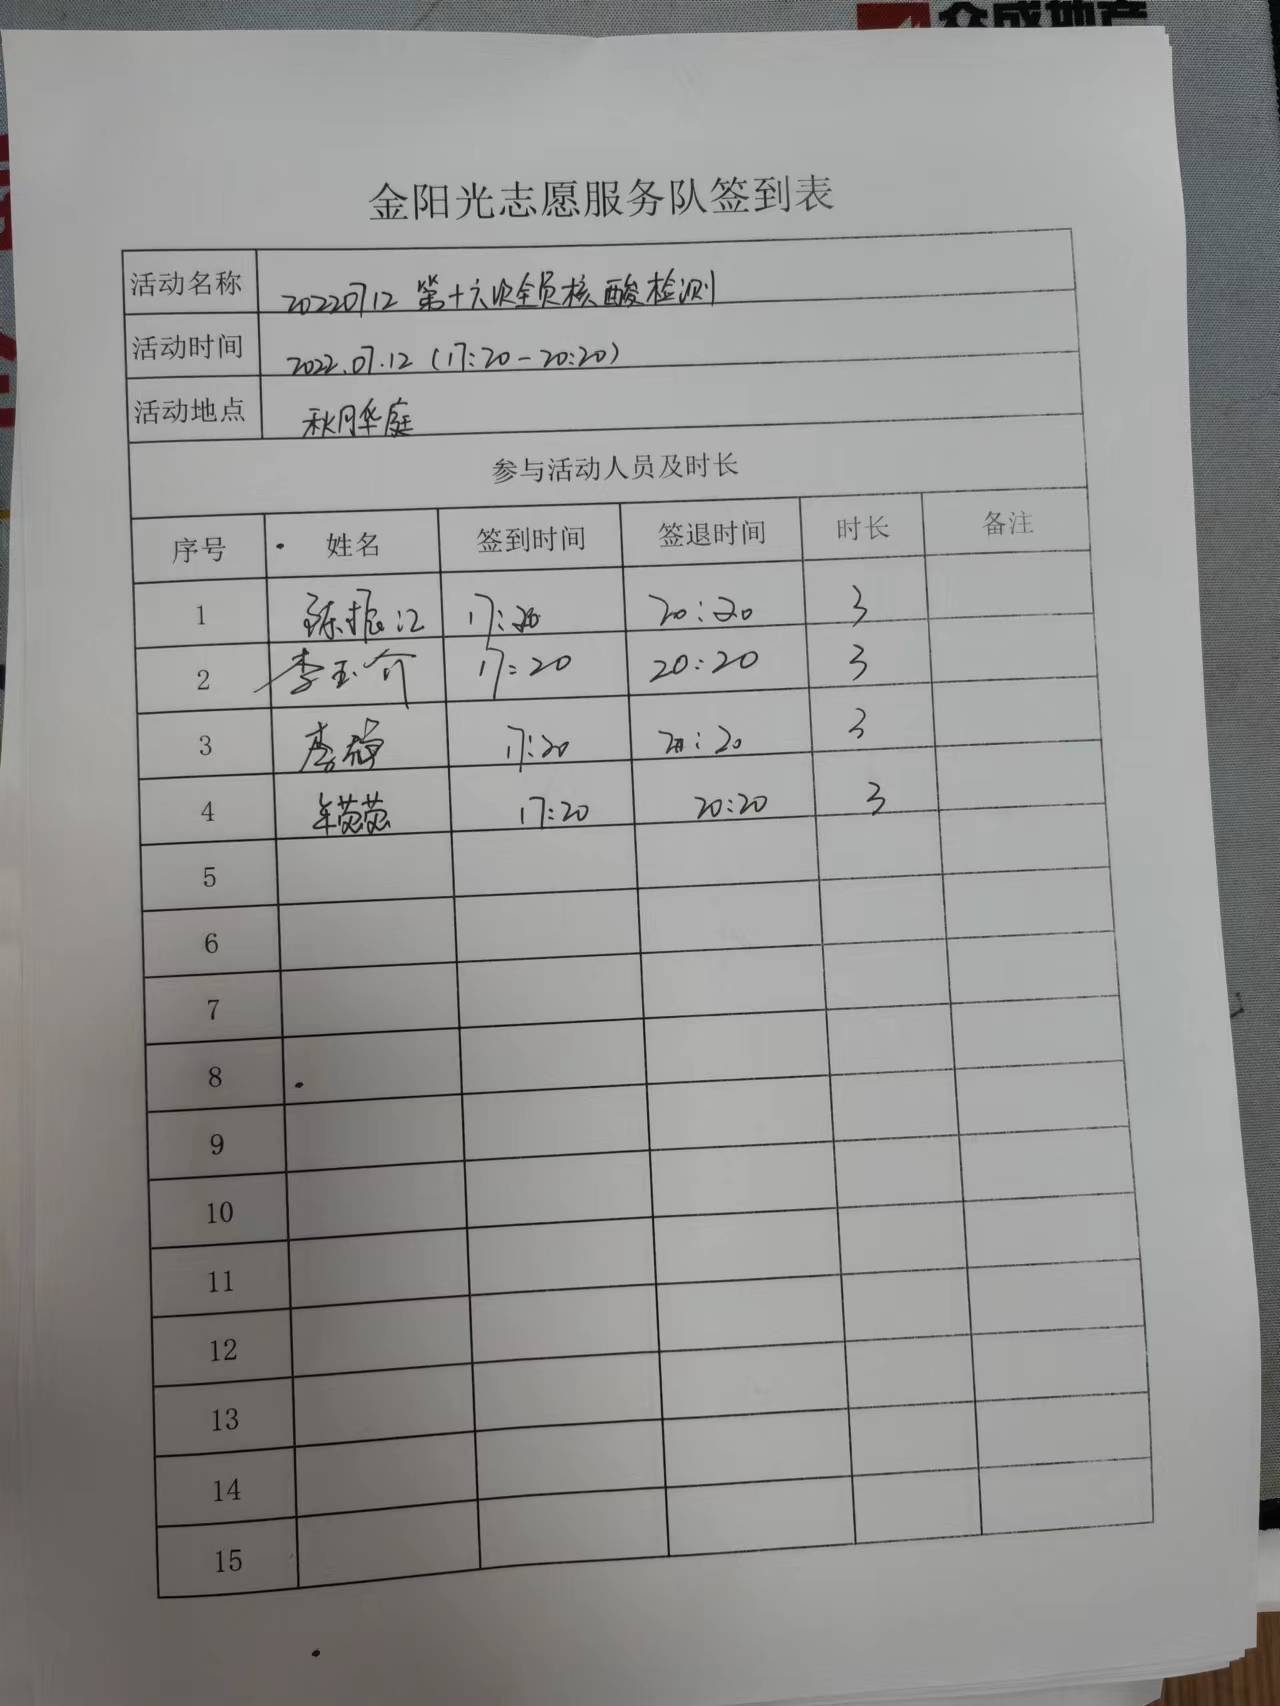 众成地产
金阳光志愿服务队签到表
活动名称 20220712 第十六次全员核酸检测
活动时间 2022.07.12 (17:20-20:20)
活动地点 秋月华庭
参与活动人员及时长
序号 姓名 签到时间 签退时间 时长 备注
1 陈振江 17:20 20:20 3
2 李玉介 17:20 20:20 3
3 17:20 20:20 3
4 牟蕊蕊 17:20 20:20 3
5
6
7
8
9
10
11
12
13
14
15